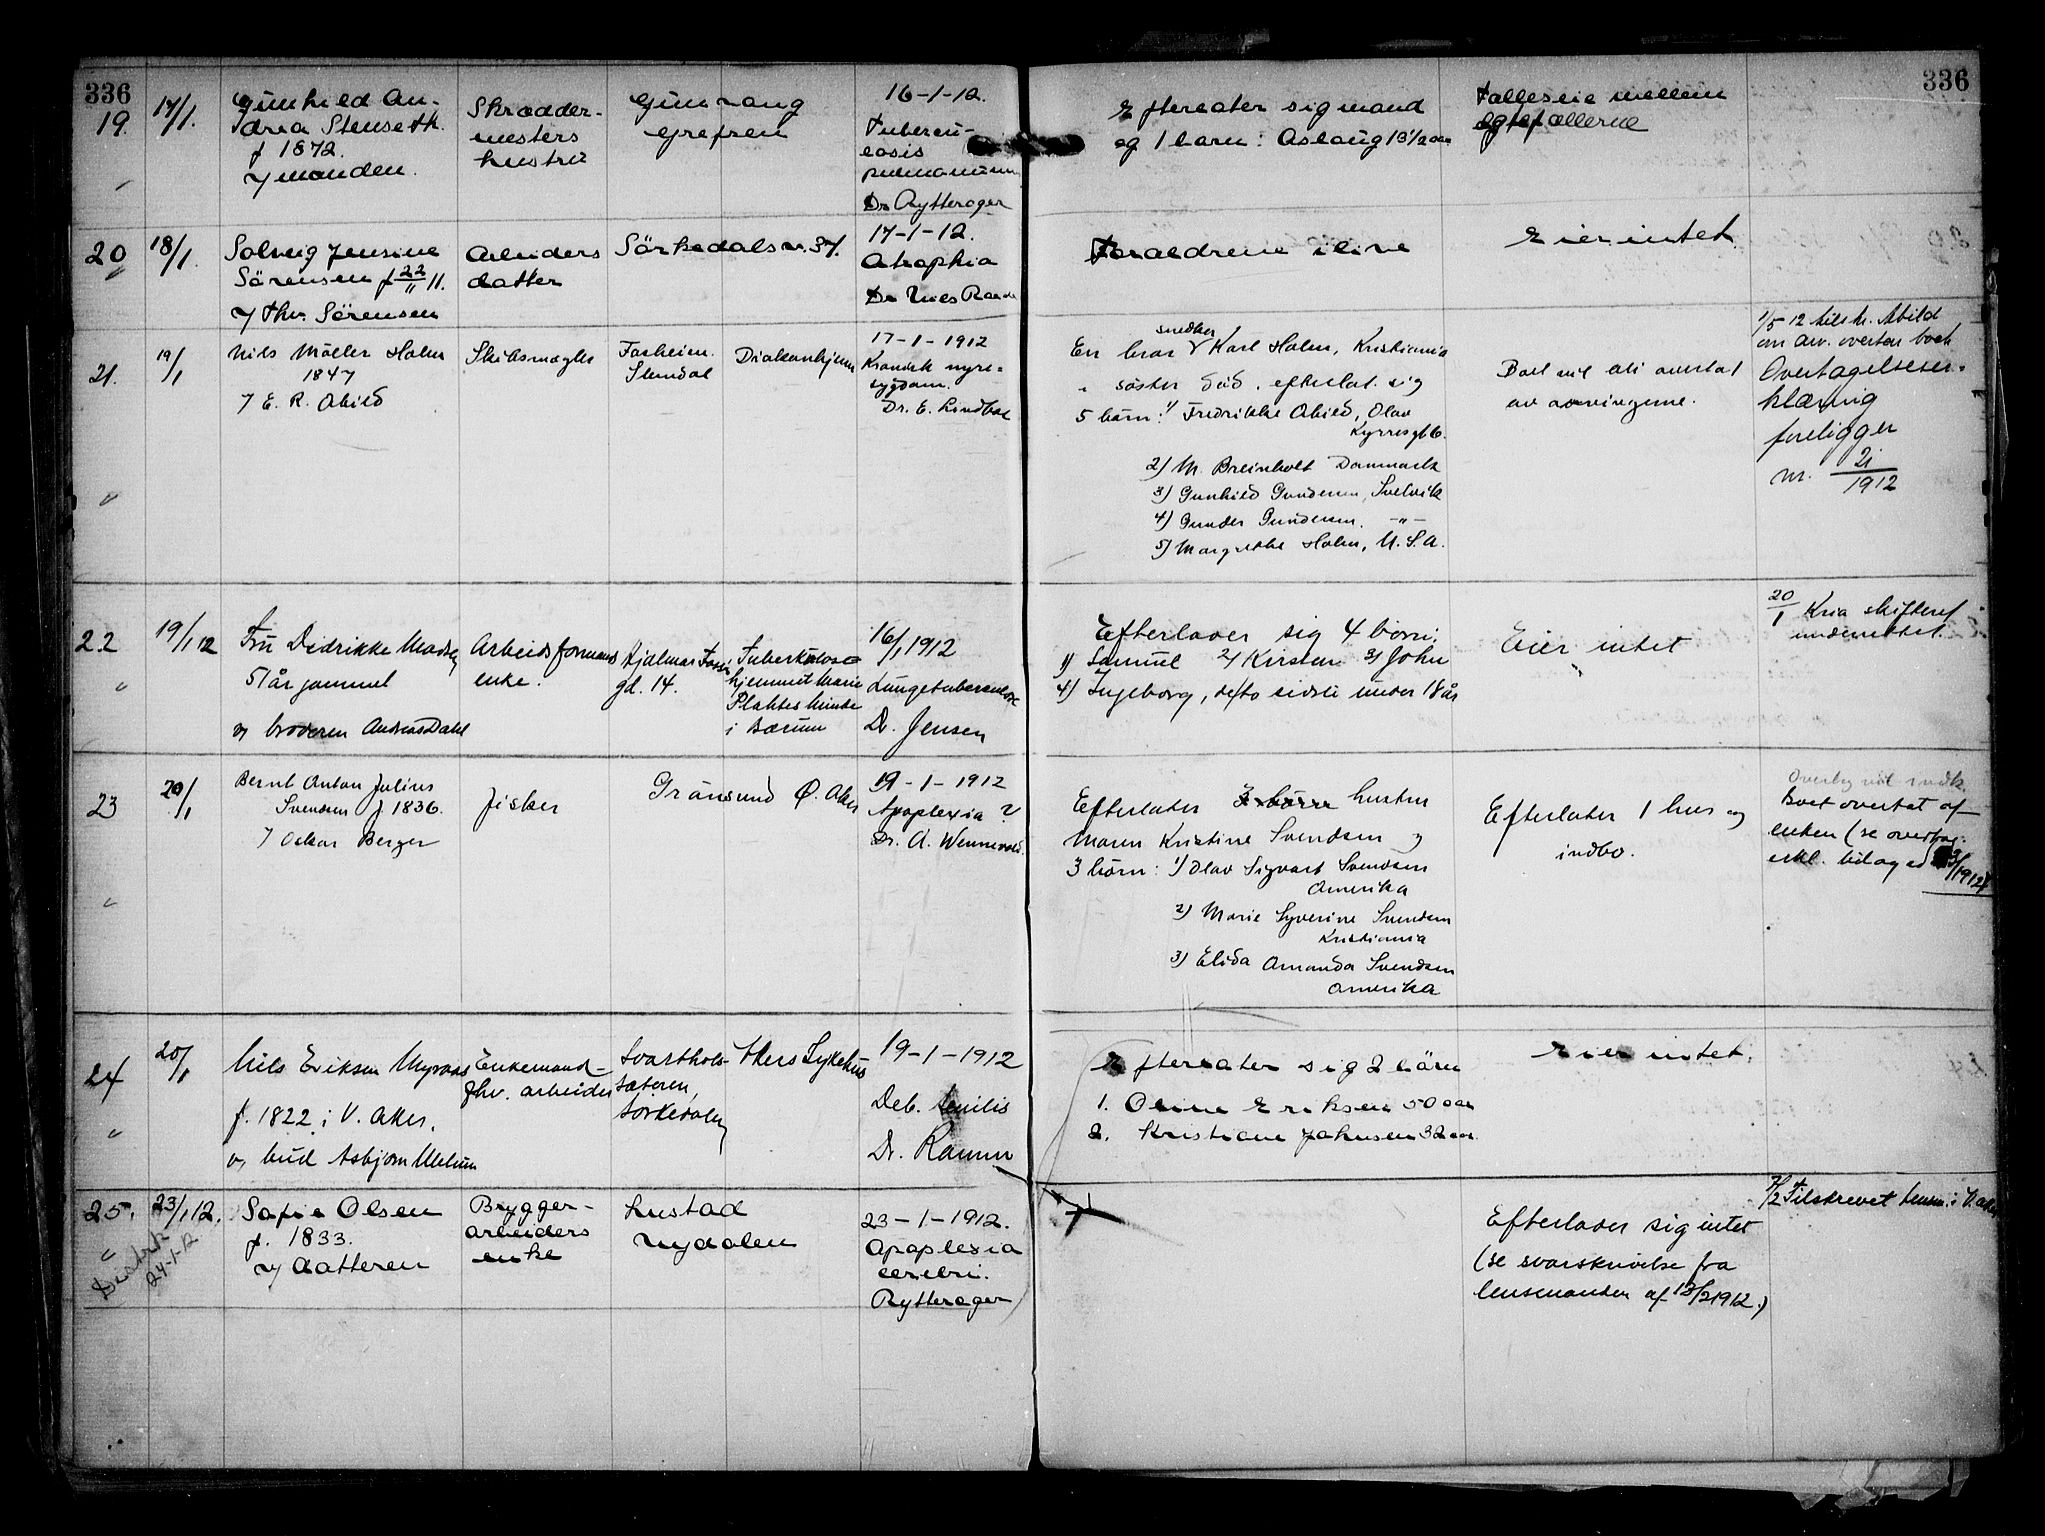 336
336
19.
17/1.
Gunhild An-
drea Stenseth
f 1872.
v/ manden.
Skrædder-
mesters
hustru
Grefsen
16-1-12.
Tubercu-
losis
pulmonum
Dr Rytterager
Efterlater sig mand
og 1 barn: Aslaug 13 1/2 aar
Fælleseie mellem
egtefællerne
20
18/1.
Solveig Jensine
Sörensen f 22/11 11.
v/ Thv. Sörensen
Arbeiders
datter
Sörkedalsv. 37.
17-1-12.
Atrophia
Dr Nils Raade
Foraeldrene i live
Eier intet.
21.
19/1
Nils Möller Holm
1847
v/ E. R. Abild
Skibsmægler
Slemdal
Diakonhjem
17-1-1912
Kronisk nyre-
sygdom.
Dr. E. Lindboe
En bror snedker Karl Holm, Kristiania
" söster död, efterlat. sig
5 börn: 1/ Fredrikke Abild, Olav
Kyrresgt 6.
2) M. Breinholt Danmark
3) Gunhild Gundersen, Svelvik
4) Gunder Gundersen. -"-
5) Margrethe Holm, U.S.A.
Boet vil bli overtat
av arvingerne.
1/5 12 tilskr. Abild
om arv. overtar boet
Overtagelseser-
klæring
foreligger
nr. 21/1912
22
19/1 12
Fru Didrikke Madsen
51 år gammel
v/ broderen Andreas Dahl
Arbeidsformans
enke.
Hjalmar
gd. 14.
Tuberkulose
hjemmet Marie
Plahtes Minde
i Bærum
16/1 1912
Lungetuberkulose
Dr. Jensen
Efterlader sig 4 börn:
1) Samuel 2/ Kirsten 3/ John
4) Ingeborg, de to sidste under 18 år
Eier intet
20/1 Kria skifteret
underrettet.
23
20/1
Bernt Anton Julius
Svendsen f 1836.
v/ Oskar Berger
fisker
Gränsund Ö. Aker
19-1-1912
Apoplexia ?
Dr. A. Wennevold.
Efterlater 3 börn hustru
Maren Kristine Svendsen og
3 börn: 1/ Olav Sigvart Svendsen
Amerika
2) Marie Syverine Svendsen
Kristiania
3) Elida Amanda Svendsen
Amerika
Efterlater 1 hus og
indbo.
Boet overtat af
enken (se overtag.
erkl. bilag ad 23/1912)
24
20/1
Nils Eriksen Myraas
f. 1822 i V. Aker.
v/ bud Asbjörn Ullelum
Enkemand-
fhv. arbeider
Svarthols-
sæteren,
Sörkedalen
Akers Sykehus
19-1-1912
Deb. senilis
Dr. Ramm
Efterlater sig 2 börn
1. Oline Eriksen 50 aar
2. Kristiane Johnsen 32 aar.
Eier intet.
25.
23/1 12.
24-1-12
Sofie Olsen
f. 1833.
v/ datteren
Brygger-
arbeiders
enke
Lustad
Nydalen
23-1-1912.
Apoplexia
cerebri.
Rytterager
Efterlader sig intet
(se svarskrivelse fra
lensmanden af 13/2 1912.)
7/2 Tilskrevet lensm. i V. Aker